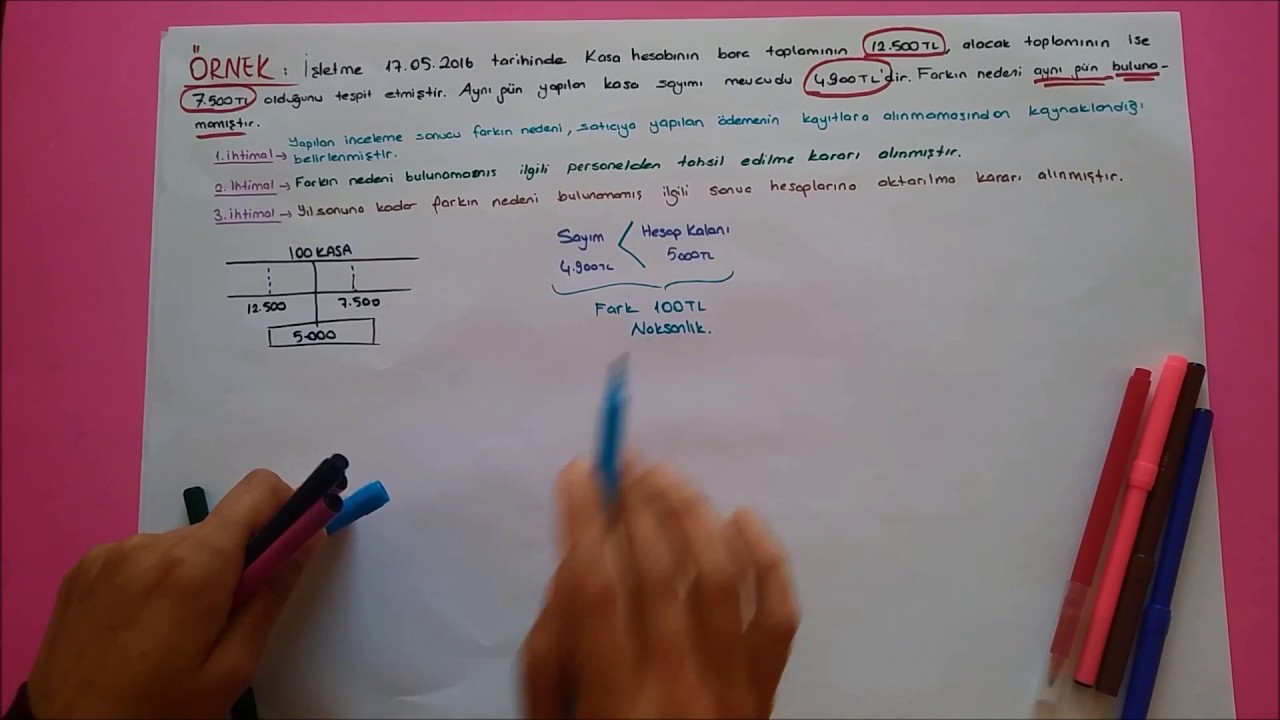 ÖRNEK: İşletme 17.05.2016 tarihinde Kasa hesabının borç toplamının 12.500TL, alacak toplamının ise
7.500TL olduğunu tespit etmiştir. Aynı gün yapılan kasa sayımı mevcudu 4.900TL'dir. Farkın nedeni aynı gün buluna-
mamıştır.
1. ihtimal → Yapılan inceleme sonucu farkın nedeni, satıcıya yapılan ödemenin kayıtlara alınmamasından kaynaklandığı
belirlenmiştir.
2. ihtimal → Farkın nedeni bulunamamış ilgili personelden tahsil edilme kararı alınmıştır.
3. ihtimal → Yılsonuna kadar farkın nedeni bulunamamış ilgili sonuç hesaplarına aktarılma kararı alınmıştır.
100 KASA
12.500 7.500
5.000
Sayım < Hesap Kalanı
4.900TL 5000TL
Fark 100TL
Noksanlık.